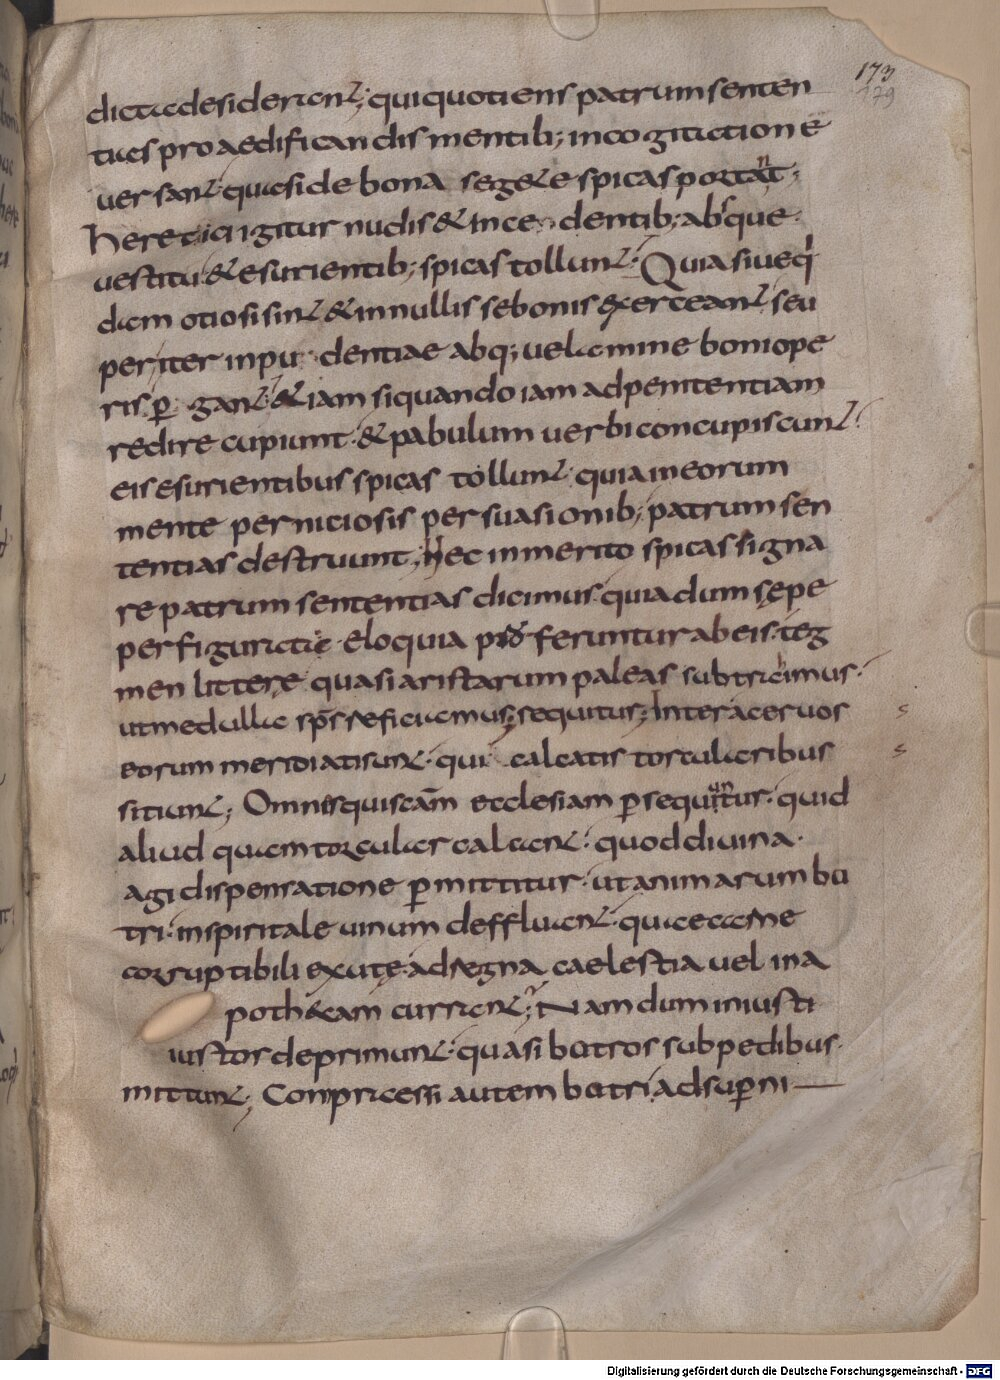 173
179
dicta desiderant; qui quotiens patrum senten
tias pro aedificandis mentib; in cogitatione
versant· quasi de bona segete spicas portant;
heretici igitur nudis & incedentib; absque
vestitu & esurientib; spicas tollunt· Quia sive qui
dam otiosi sint & in nullis se bonis exerceant seu
pariter inpudentiae absq; velamine boni ope
ris p gant· & iam si quando iam ad penitentiam
redire cupiunt· & pabulum verbi concupiscunt·
eis esurientibus spicas tollunt· quia in eorum
mente perniciosis persuasionib; patrum sen
tentias destruunt; Nec inmerito spicas signa
re patrum sententias dicimus· quia dum sępe
per figurata eloquia proferuntur ab eis· teg
men litterę quasi aristarum paleas subtrahimus·
ut medulla sps reficiamus; sequitur; Inter acervos
eorum meridiati sunt· qui calcatis torcularibus
sitiunt; Omnes qui scam ecclesiam psequuntur· quid
aliud quam torcular calcant· quod divina·
agi dispensatione pmittitur· ut animarum bo
tri· in spiritale vinum deffluant· quae carne
corruptibili exutę ad regna caelestia vel in a
poth&cam currant; Nam dum iniusti
iustos deprimunt· quasi botros sub pedibus·
mittunt; Conpressi autem botri ad superni
s
s
Digitalisierung gefördert durch die Deutsche Forschungsgemeinschaft - DFG